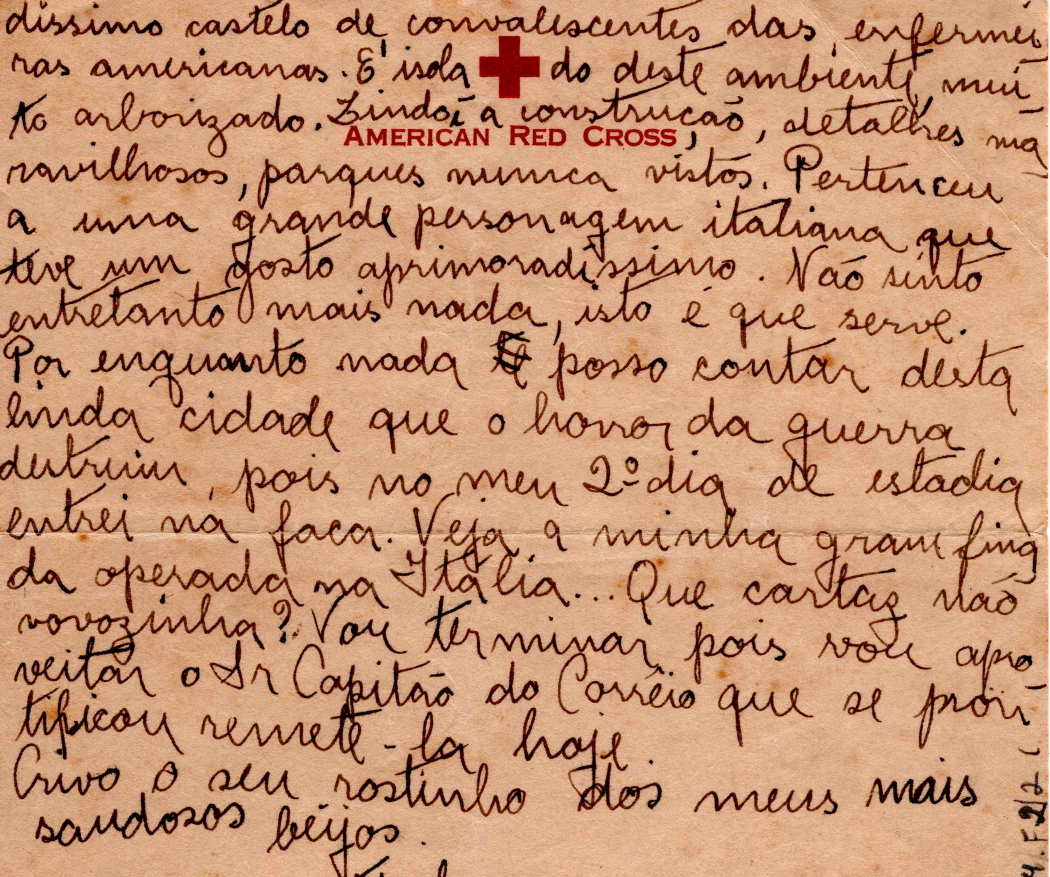 dissimo castelo de convalescentes das enfermei
ras americanas. E' isola do deste ambiente, mui
to arborizado. Linda a construção, detalhes ma
AMERICAN RED CROSS
ravilhosos, parques nunca vistos. Pertenceu
a uma grande personagem italiana que
teve um gosto aprimoradissimo. Não sinto
entretanto mais nada, isto é que serve.
Por enquanto nada posso contar desta
linda cidade que o horror da guerra
destruiu, pois no meu 2º dia de estadia
entrei na faca. Veja a minha gran fina
da operada na Itália... Que cartaz não
vovozinha? Vou terminar pois vou apro
veitar o Sr Capitão do Corrêio que se pron
tificou remetê-la hoje.
Crivo o seu rostinho dos meus mais
saudosos beijos.